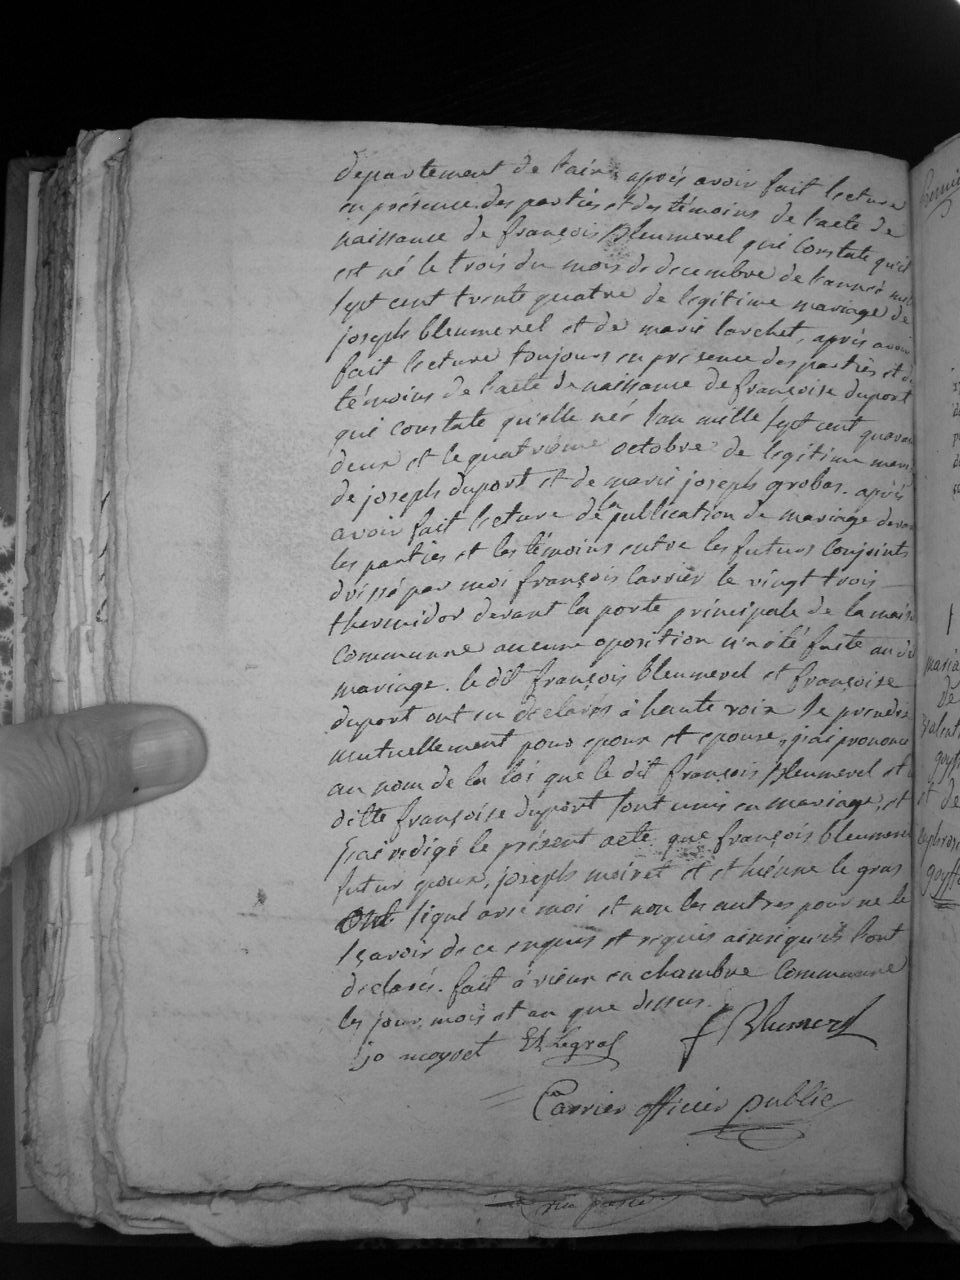 departement de l'ain, après avoir fait lecture
en présence des parties et des témoins de l'acte de
naissance de françois Bleumerel qui constate qu'il
est né le trois du mois de decembre de l'année mil
sept cent trente quatre de legitime mariage de
joseph bleumerel et de marie larchet, après avoir
fait lecture toujours en présence des parties et de
témoins de l'acte de naissance de françoise duport
qui constate qu'elle née l'an mille sept cent quaran
deux et le quatrième octobre de legitime mari
de joseph duport et de marie joseph grobas. après
avoir fait lecture de la publication de mariage devan
les parties et les témoins entre les futurs conjoints
dressé par moi françois Carrier le vingt trois
thermidor devant la porte principale de la maiso
commune aucune oposition n'a été faite au dit
mariage. le dit françois bleumerel et françoise
duport ont en declarés à haute voix se prendre
mutuellement pour epoux et epouse, j'ai prononcé
au nom de la loi que le dit françois bleumerel et
ditte françoise duport sont unis en mariage, et
j'ai redigé le présent acte que françois bleumerel
futur epoux, joseph moiret et ethiénne le gras
ont signé avec moi et non les autres pour ne le
sçavoir de ce enquis et requis ainsi qu'ils l'ont
declaré. fait à vieux en chambre commune
les jour, mois et an que dessus.
jo moyret Et Legras f Blumerel
Carrier officier public
mariag
De
valent
goyff
et de
goyffo